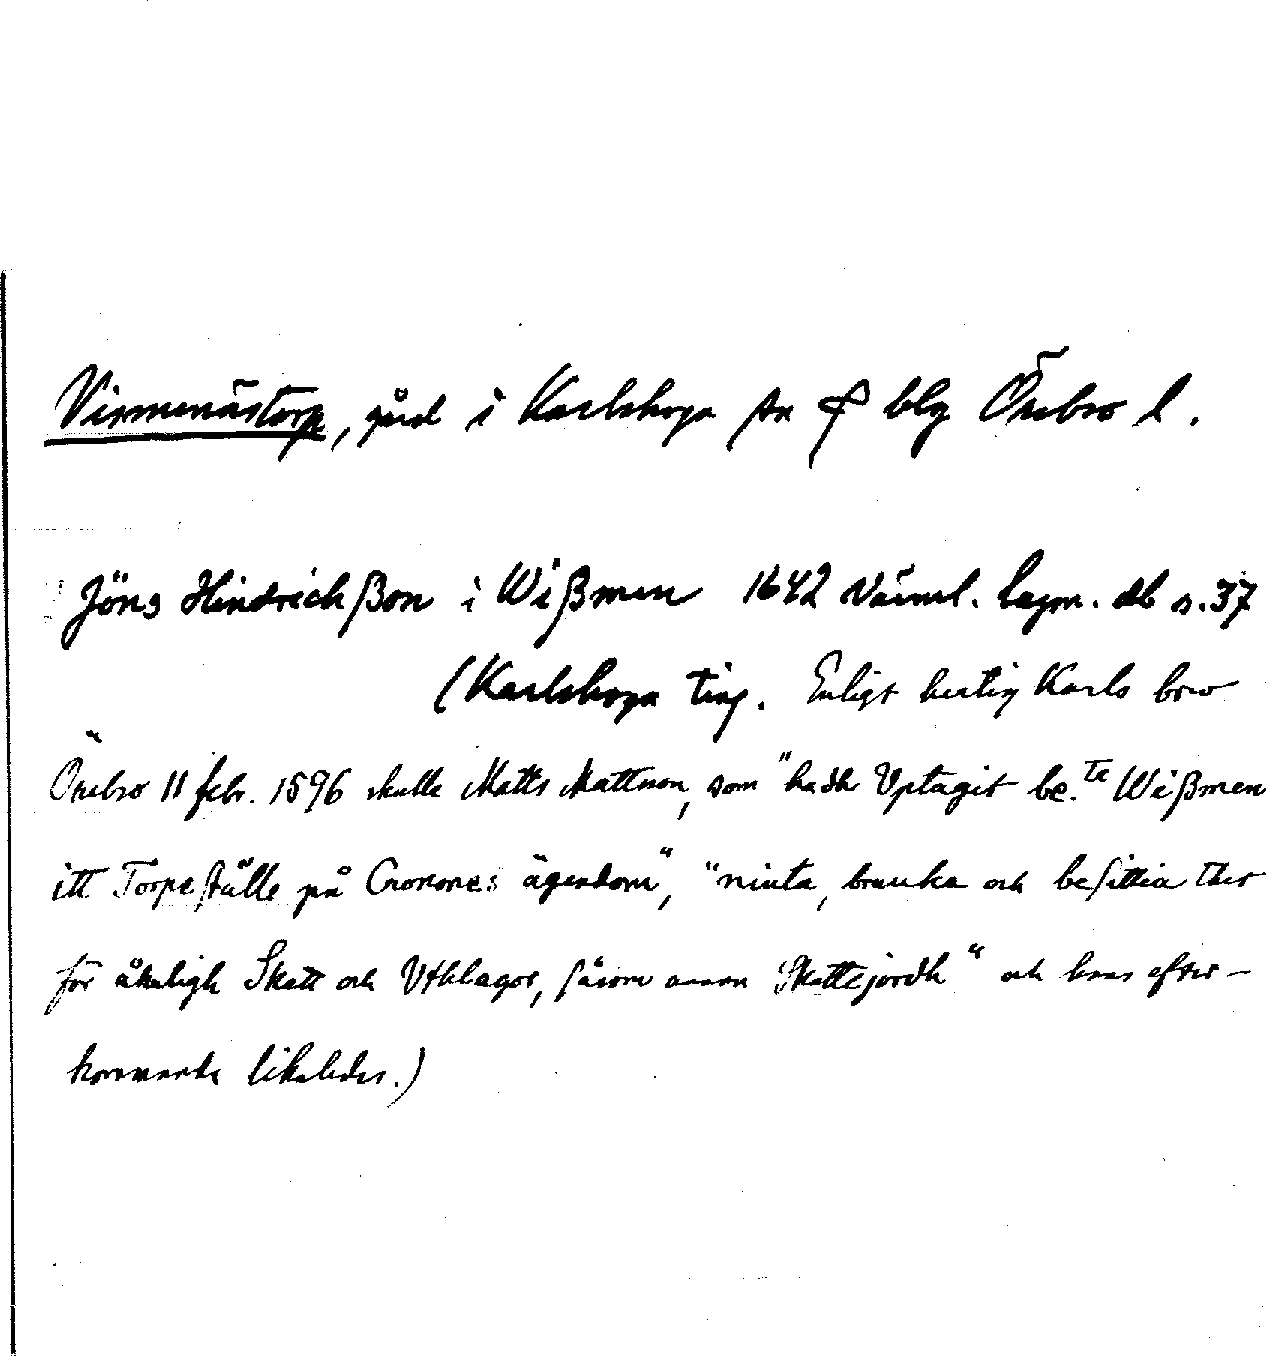 Vismenästorp, gård i Karlskoga sn o blg Örebro l.
Jöns Hindrichßon i Wißmen 1642 Värml. Lagm. db s. 37
(Karlskoga ting. Enligt hertig Karls brev
Örebro 11 febr. 1596 skulle Matts Mattsson, som "hadh Uptagit be.te Wißmen
itt Torpeställe på Cronones ägendom", "niuta, bruuka och besittia ther
för åhrligh Skatt och Vthlagor, såsom annan Skattejordh" och hans efter-
kommande likaledes.)